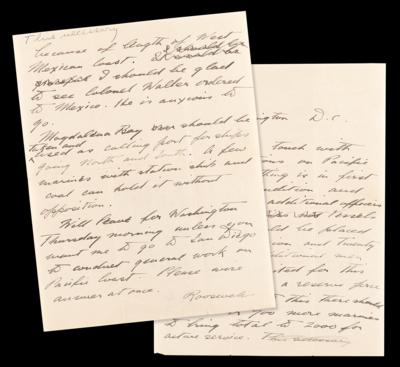 This necessary
because of length of West
Mexican Coast. I should be
I should be glad
to see Colonel Waller ordered
to Mexico. He is anxious to
go.
Magdalena Bay should be
taken and
used as calling port for ships
going North and South. A few
marines with station ship and
coal can hold it without
opposition.
Will leave for Washington
Thursday morning unless you
want me to go to San Diego
to conduct general work on
Pacific Coast. Please wire
answer at once.
Roosevelt
ington D.C.
touch with
ions on Pacific
thing is in first
ndition and
additional officers
Vessels
ld be placed
ion and twenty
ditional men
ted for this
a reserve force
this there should
700 more marines
to bring total to 2000 for
active service. This necessary